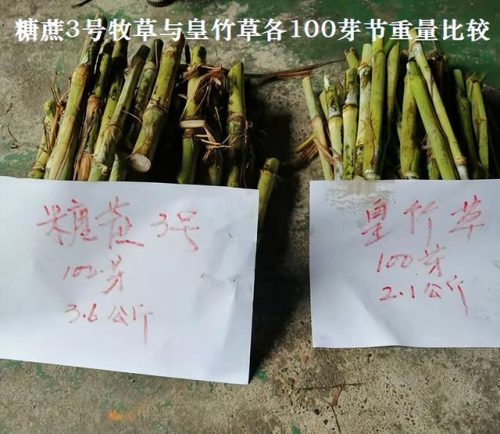 糖蔗3号牧草与皇竹草各100芽节重量比较
糖蔗3号
100芽
3.6公斤
皇竹草
100芽
2.1公斤